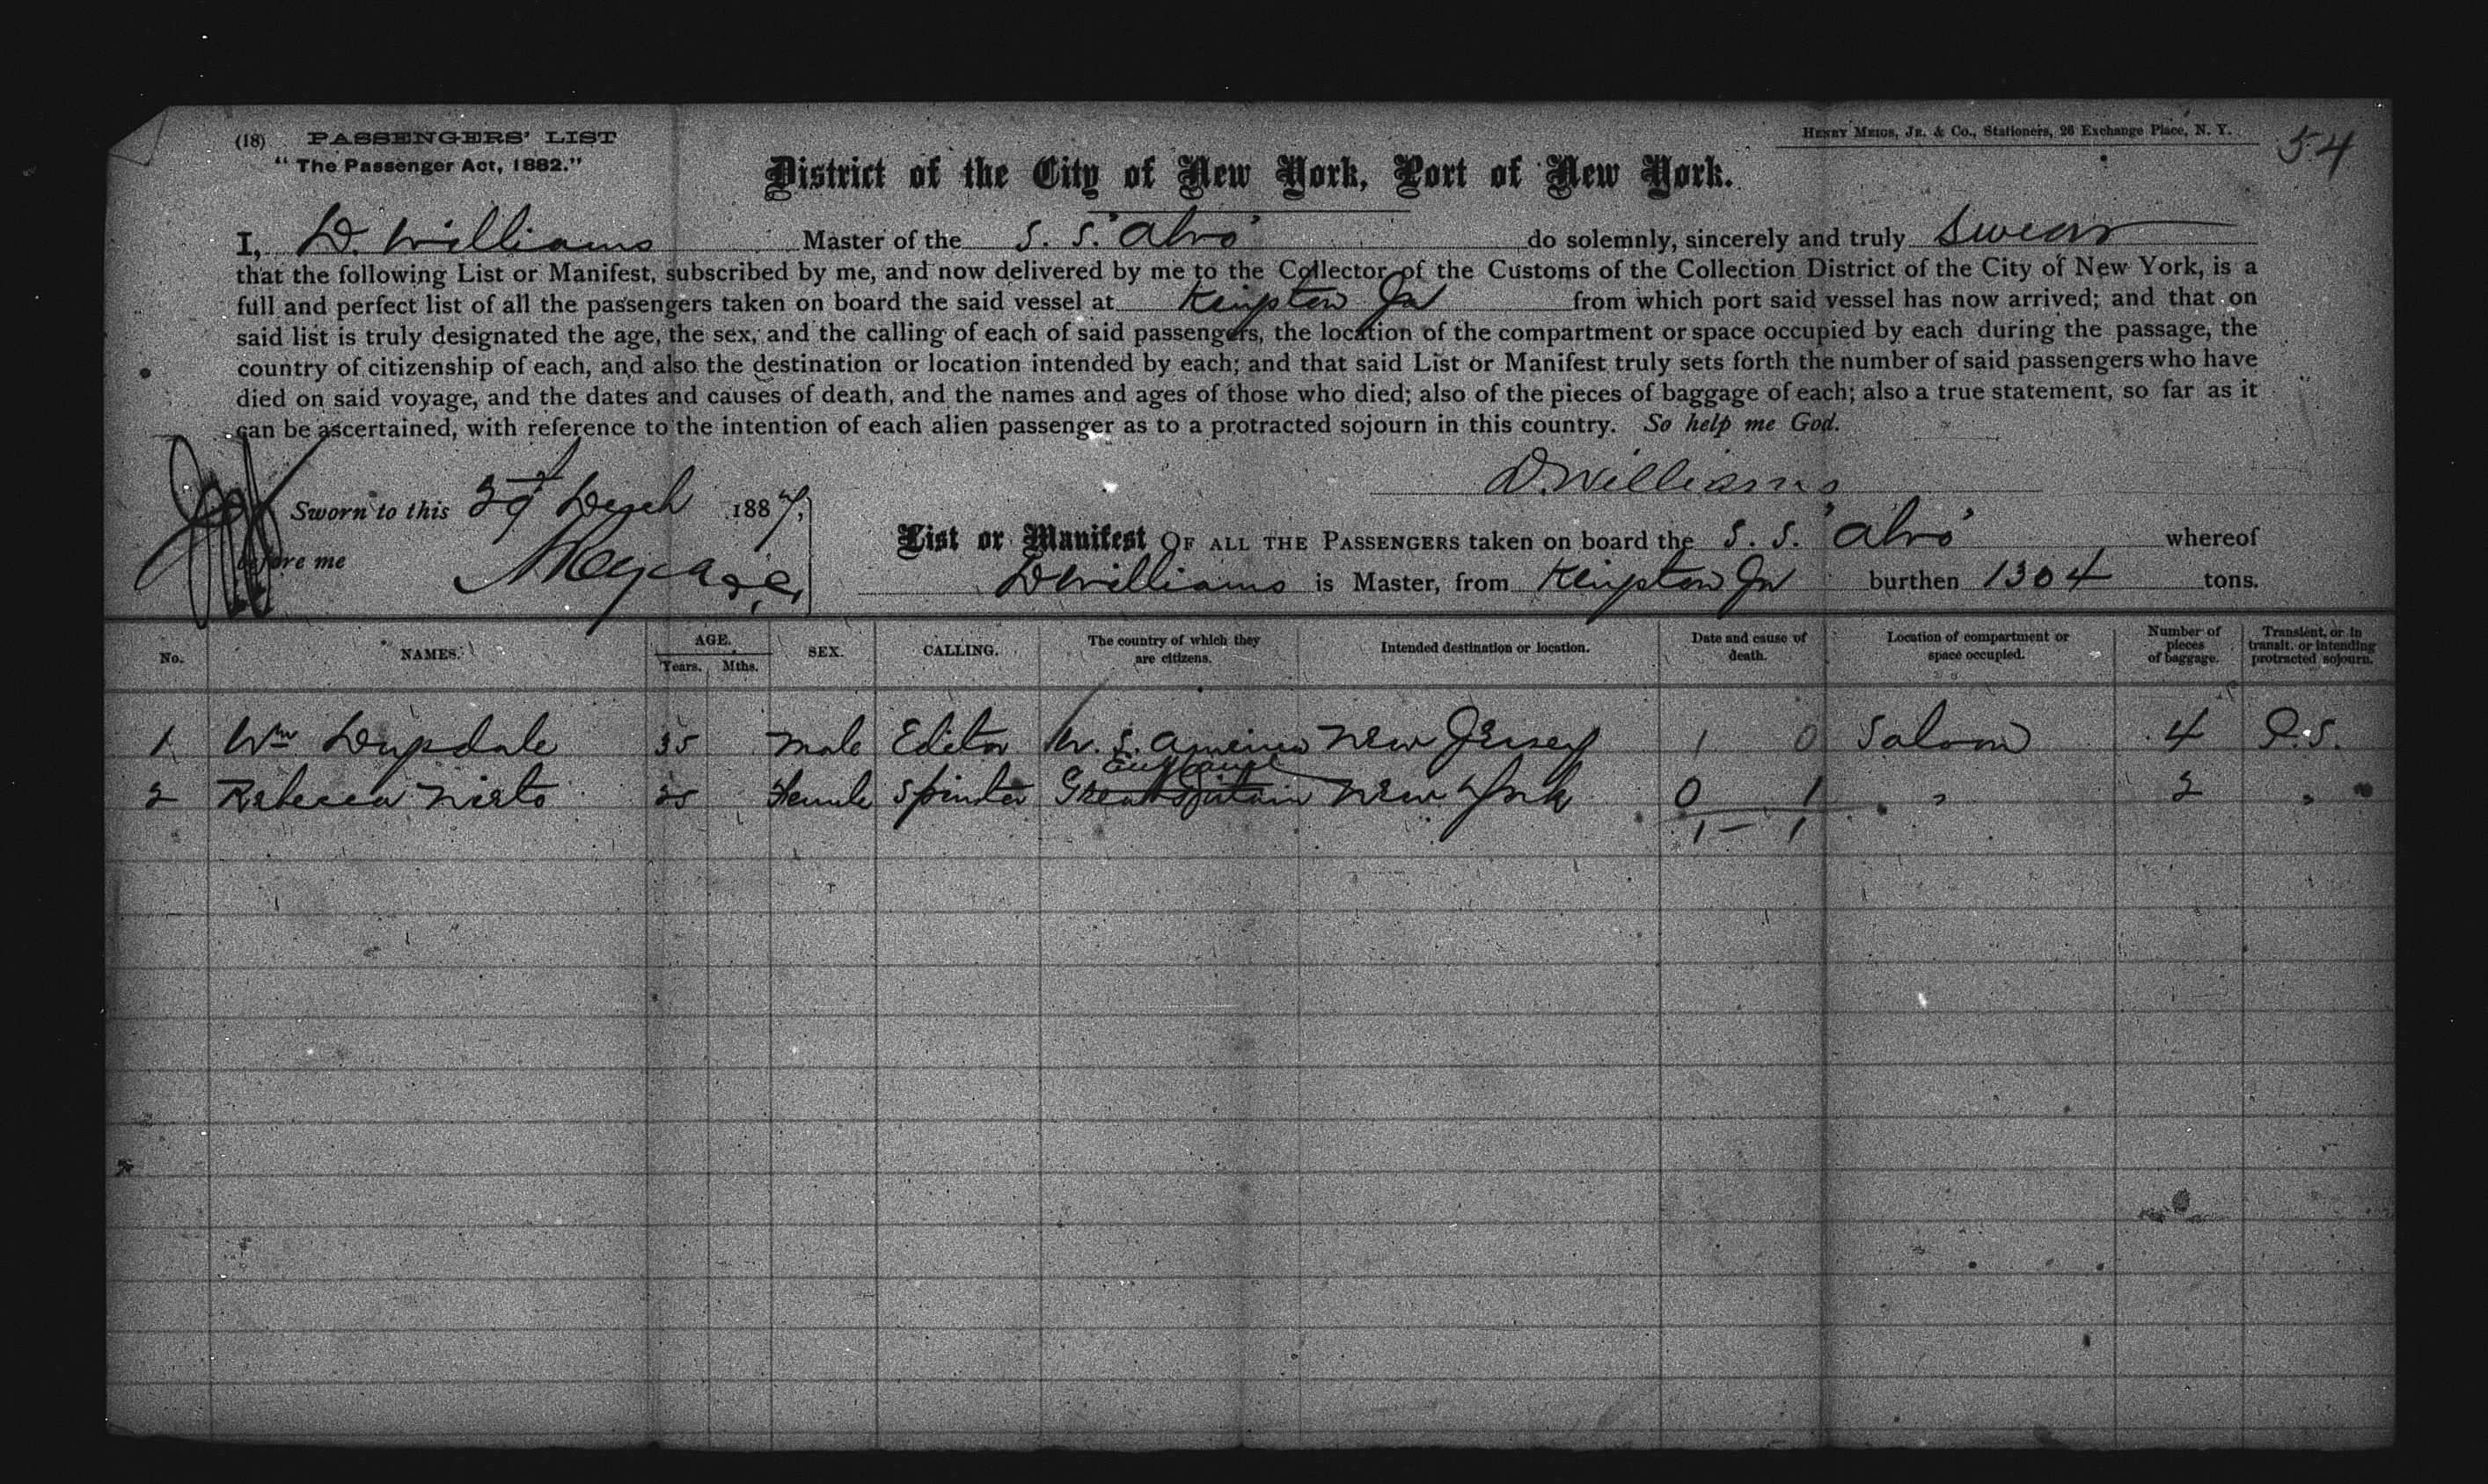 (18) PASSENGERS' LIST
"The Passenger Act, 1882."
HENRY MEIGS, JR. & Co., Stationers, 26 Exchange Place, N. Y.
54
District of the City of New York, Port of New York.
I, D. Williams Master of the S. S. "Alvo" do solemnly, sincerely and truly swear
that the following List or Manifest, subscribed by me, and now delivered by me to the Collector of the Customs of the Collection District of the City of New York, is a
full and perfect list of all the passengers taken on board the said vessel at Kingston Ja from which port said vessel has now arrived; and that on
said list is truly designated the age, the sex, and the calling of each of said passengers, the location of the compartment or space occupied by each during the passage, the
country of citizenship of each, and also the destination or location intended by each; and that said List or Manifest truly sets forth the number of said passengers who have
died on said voyage, and the dates and causes of death, and the names and ages of those who died; also of the pieces of baggage of each; also a true statement, so far as it
can be ascertained, with reference to the intention of each alien passenger as to a protracted sojourn in this country. So help me God.
D. Williams
Sworn to this 29 1887,
before me
List or Manifest OF ALL THE PASSENGERS taken on board the S. S. "Alvo" whereof
D Williams is Master, from Kingston Ja burthen 1304 tons.
No. NAMES. AGE. Years. Mths. SEX. CALLING. The country of which they are citizens. Intended destination or location. Date and cause of death. Location of compartment or space occupied. Number of pieces of baggage. Transient, or in transit, or intending protracted sojourn.
1 Wm 35 Male Editor U. S. America New Jersey 1 0 Saloon 4 P.S.
England
2 Rebecca Nieto 25 Female Spinster Great Britain New York 0 1 " 2 "
1 - 1